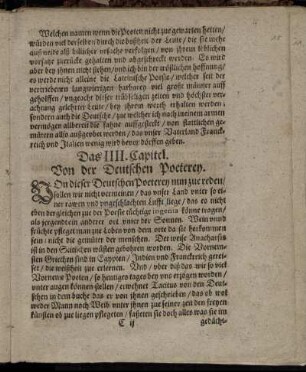 Welchen namen wenn die Poeten nicht zue gewarten hetten/
würden viel derselben durch die boßheit der Leute/ die sie mehr
auß neide alß billicher vrsache verfolgen/ von jhrem löblichen
vorsatze zuerücke gehalten vnd abgeschreckt werden. Es wird
aber bey jhnen nicht stehen/ vnd ich bin der tröstlichen hoffnung/
es werde nicht alleine die Lateinische Poesie/ welcher seit der
vertriebenen langwierigen barbarey viel große männer auff
geholffen/ vngeacht dieser trübseligen zeiten vnd höchster ver-
achtung gelehrter Leute/ bey jhrem werth erhalten werden;
sondern auch die Deutsche/ zue welcher ich nach meinem armen
vermögen allbereit die fahne auffgesteckt/ von stattlichen ge-
mütern allso außgeübet werden/ das vnser Vaterland Franck-
reich vnd Italien wenig wird bevor dörffen geben.
Das IIII. Capitel.
Von der Deutschen Poeterey.
VOn dieser Deutschen Poeterey nun zue reden/
sollen wir nicht vermeinen/ das vnser Land vnter so ei-
ner rawen vnd vngeschlachten Lufft liege/ das es nicht
eben dergleichen zue der Poesie tüchtige ingenia könne tragen/
als jergendt ein anderer ort vnter der Sonnen. Wein vnnd
früchte pfleget man zue Loben von dem orte da sie herkommen
sein; nicht die gemüter der menschen. Der weise Anacharsis
ist in den Scitischen wüsten gebohren worden. Die Vornem-
sten Griechen sind in Egypten/ Indien vnd Franckreich gerei-
set/ die weißheit zue erlernen. Vnd/ vber diß/ das wir so viel
Vorneme Poeten/ so heutiges tages bey vns erzogen worden/
vnter augen können stellen/ erwehnet Tacitus von den Deut-
schen in dem buche das er von jhnen geschrieben/ das ob wol
weder Mann noch Weib vnter jhnen zue seiner zeit den freyen
künsten ob zue liegen pflegeten/ fasseten sie doch alles was sie im
C ij
gedächt-